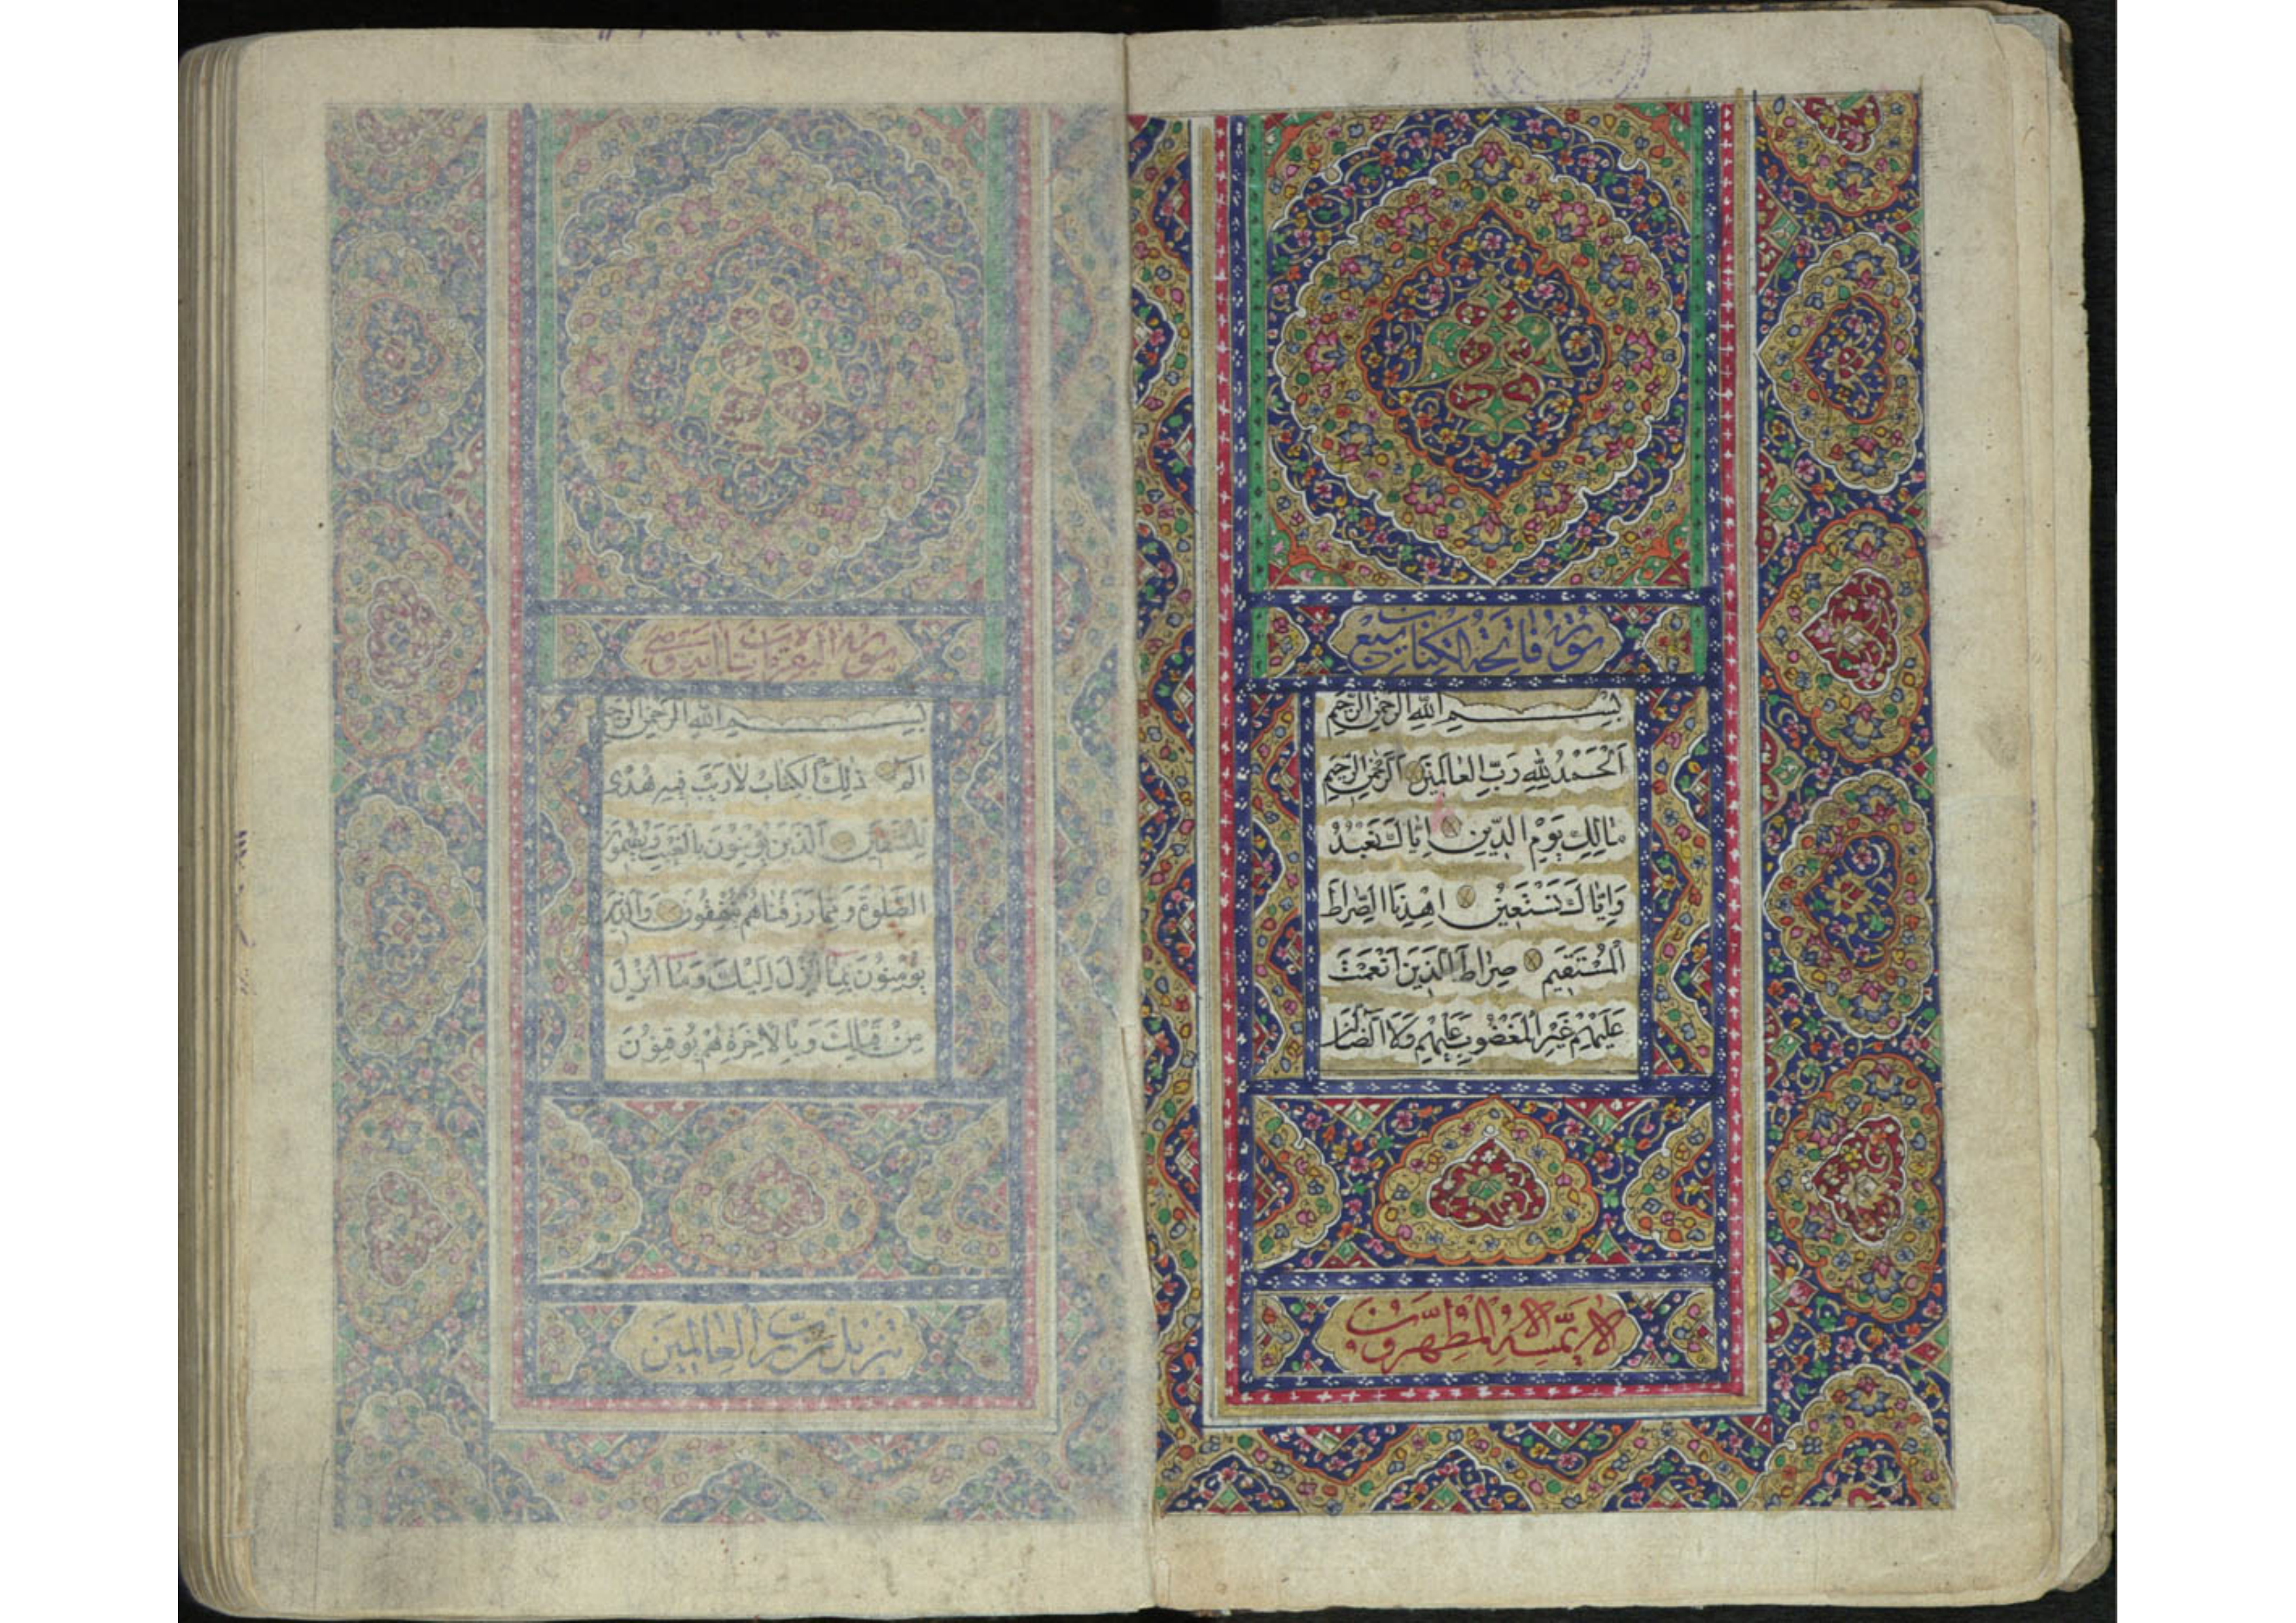 سورة فاتحة الكتاب سبع
بِسْمِ اللّٰهِ الرَّحْمٰنِ الرَّحِيمِ
اَلْحَمْدُ لِلّٰهِ رَبِّ الْعَالَمِينَ اَلرَّحْمٰنِ الرَّحِيمِ
مَالِكِ يَوْمِ الدِّينِ اِيَّاكَ نَعْبُدُ
وَاِيَّاكَ نَسْتَعِينُ اِهْدِنَا الصِّرَاطَ
الْمُسْتَقِيمَ صِرَاطَ الَّذِينَ اَنْعَمْتَ
عَلَيْهِمْ غَيْرِ الْمَغْضُوبِ عَلَيْهِمْ وَلَا الضَّالِّينَ
لا يمسه الا المطهرون
سورة البقرة مائتا
بسم الله الرحمن الرحيم
الم ذٰلِكَ الكِتَابُ لَا رَيْبَ فِيهِ هُدًى
لِلْمُتَّقِينَ اَلَّذِينَ يُؤْمِنُونَ بِالْغَيْبِ وَيُقِيمُونَ
الصَّلٰوةَ وَمِمَّا رَزَقْنَاهُمْ يُنْفِقُونَ وَالَّذِينَ
يُؤْمِنُونَ بِمَا اُنْزِلَ اِلَيْكَ وَمَا اُنْزِلَ
مِنْ قَبْلِكَ وَبِالْاٰخِرَةِ هُمْ يُوقِنُونَ
تنزيل من رب العالمين